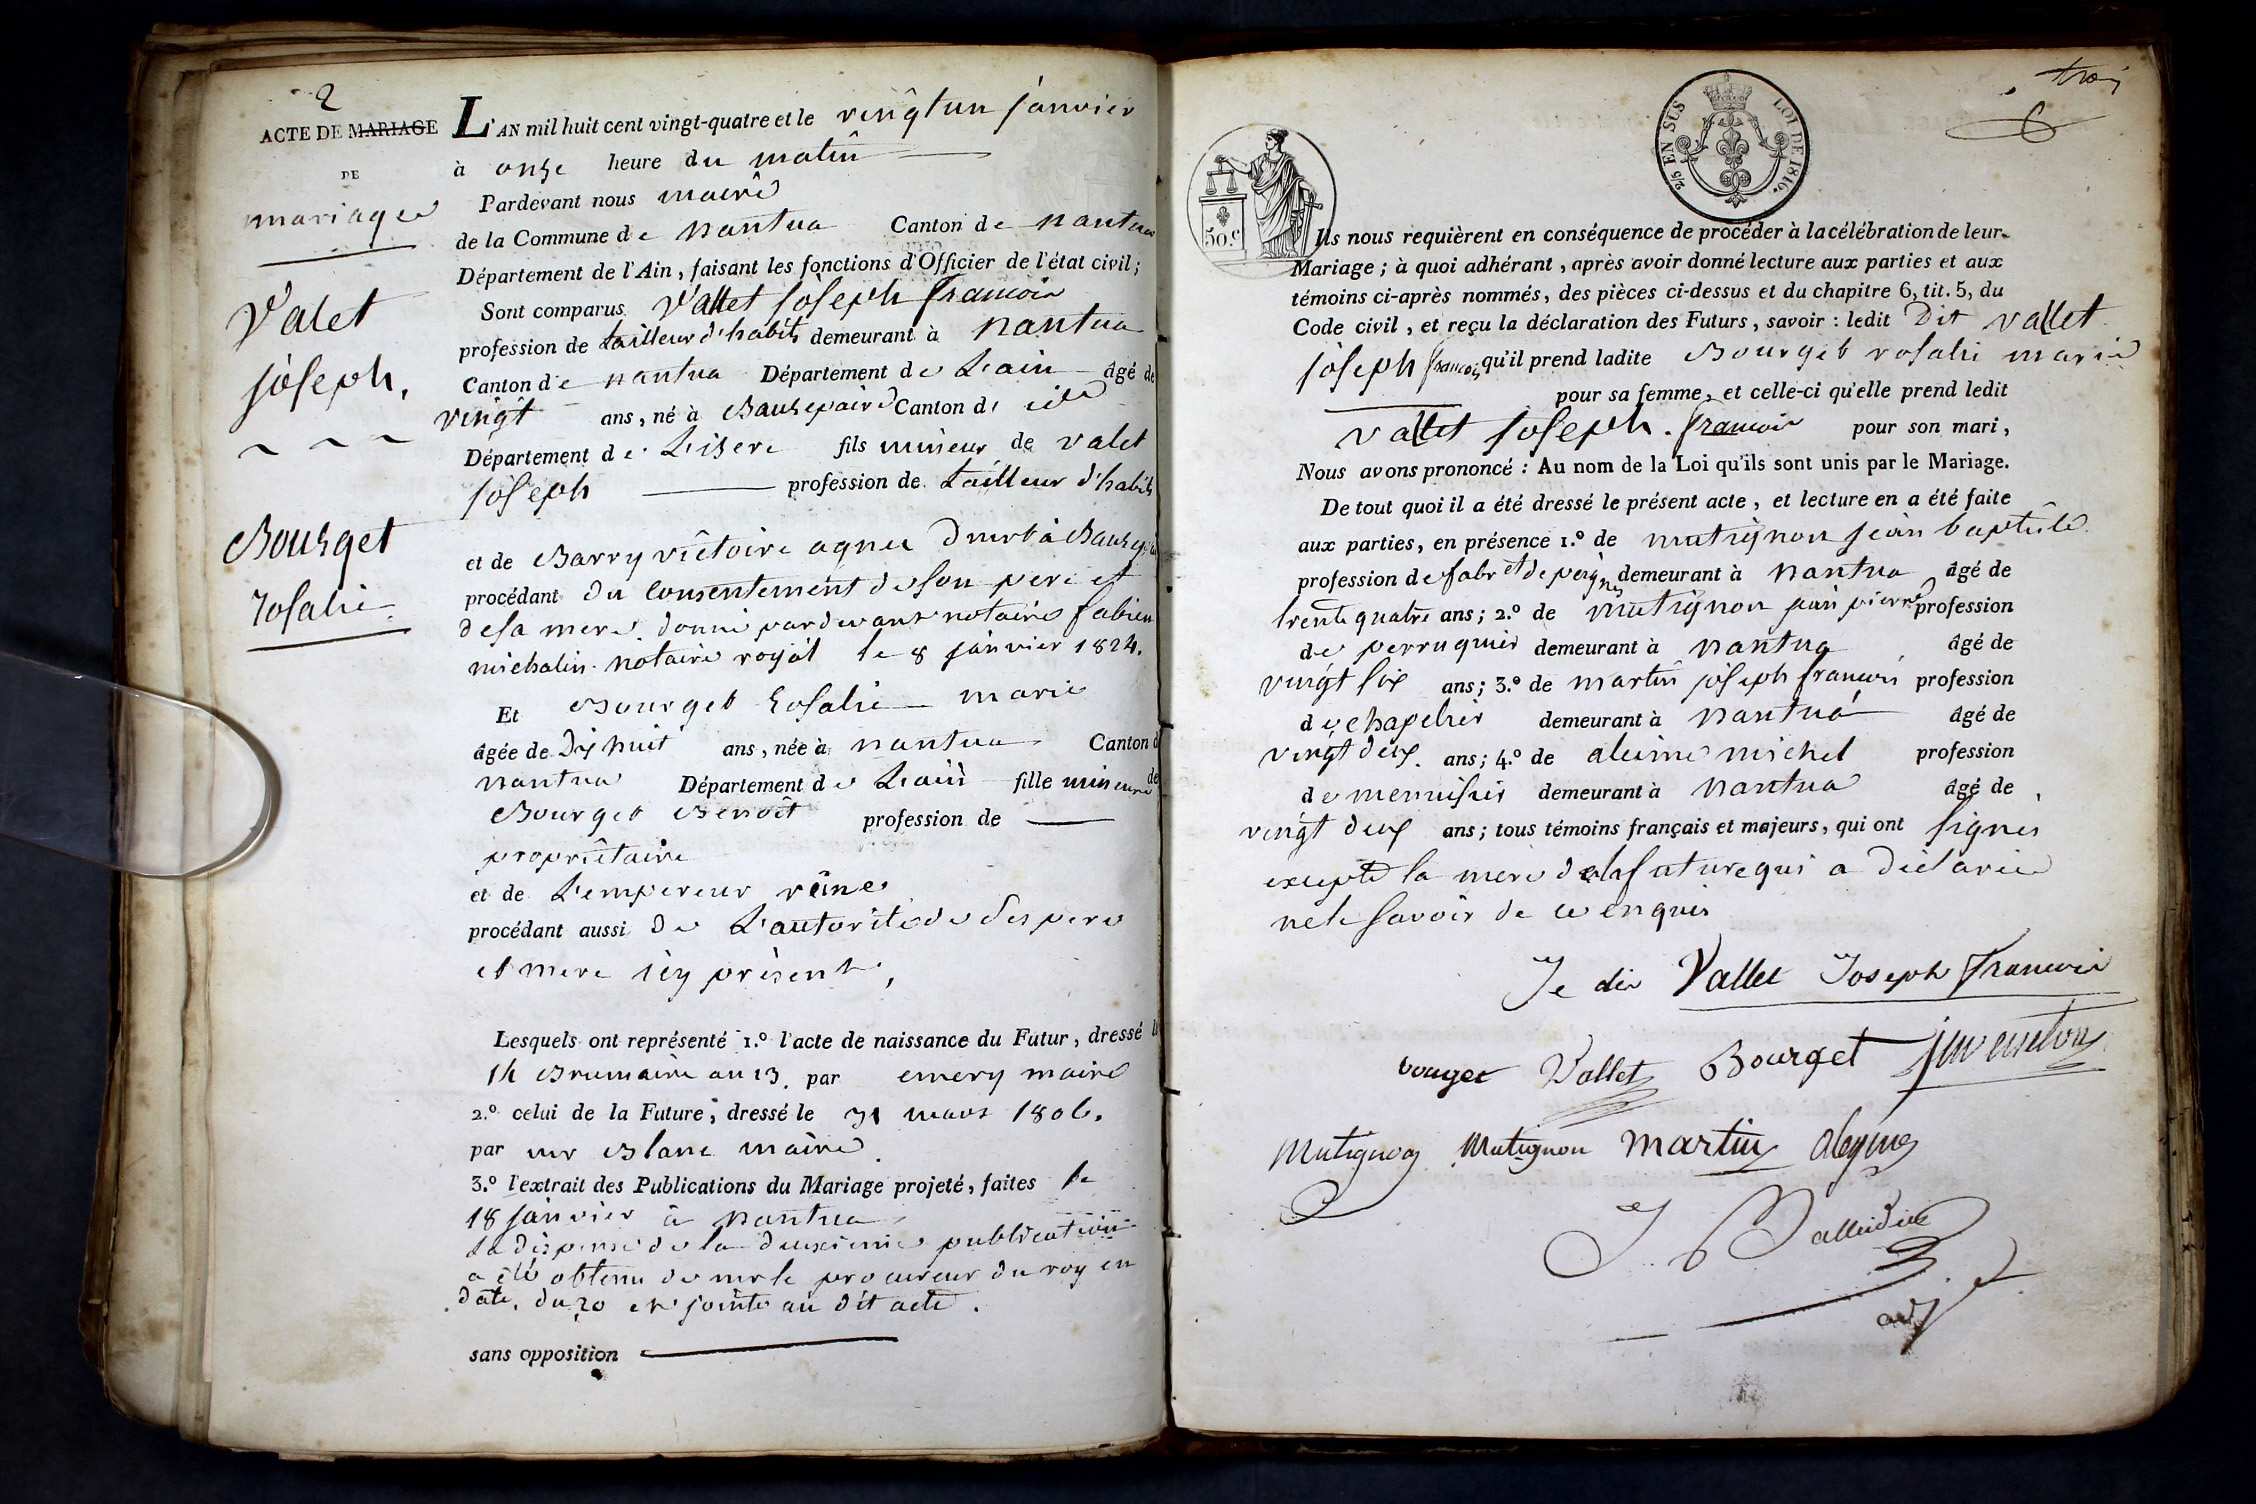 2
ACTE DE MARIAGE
DE
mariage
Valet
joseph,
Bourget
rosalie
L'AN mil huit cent vingt-quatre et le vingt un janvier
à onze heure du matin
Pardevant nous maire
de la Commune de nantua Canton de nantua
Département de l'Ain, faisant les fonctions d'Officier de l'état civil;
Sont comparus Vallet joseph francois
profession de tailleur d'habits demeurant à nantua
Canton de nantua Département de L'ain âgé de
vingt ans, né à Baurepaire Canton de
Département de L'isere fils mineur de valet
joseph profession de tailleur d'habits
et de Barry victoire agnes
procédant du consentement de son pere et
de sa mere donné pardevant notaire fabien
michalin notaire royal le 8 janvier 1824.
Et Bourget Rosalie marie
âgée de Dix huit ans, née à nantua Canton de
nantua Département de L'ain fille mineure de
Bourget Benoit profession de
propriétaire
et de L'empereur reine
procédant aussi de L'autorité de ses pere
et mere icy présent,
Lesquels ont représenté 1.º l'acte de naissance du Futur, dressé le
14 Brumaire an 13. par emery maire
2.º celui de la Future, dressé le 31 mars 1806.
par mr Blanc maire
3.º l'extrait des Publications du Mariage projeté, faites le
18 janvier à nantua
la dispense de la deuxieme publication
a été obtenu de mr le procureur du roy en
date du 20 et jointe au dit acte.
sans opposition
trois
2/5 EN SUS LOI DE 1816.
50.c
Ils nous requièrent en conséquence de procéder à la célébration de leur
Mariage; à quoi adhérant, après avoir donné lecture aux parties et aux
témoins ci-après nommés, des pièces ci-dessus et du chapitre 6, tit. 5, du
Code civil, et reçu la déclaration des Futurs, savoir: ledit Dit vallet
joseph francois qu'il prend ladite Bourget rosalie marie
pour sa femme, et celle-ci qu'elle prend ledit
vallet joseph francois pour son mari,
Nous avons prononcé: Au nom de la Loi qu'ils sont unis par le Mariage.
De tout quoi il a été dressé le présent acte, et lecture en a été faite
aux parties, en présence 1.º de mutignon jean baptiste
profession de fabr et de peignes demeurant à nantua âgé de
trente quatre ans; 2.º de mutignon jean pierre profession
de perruquier demeurant à nantua âgé de
vingt six ans; 3.º de martin joseph francois profession
de chapelier demeurant à nantua âgé de
vingt deux ans; 4.º de michel profession
de menuisier demeurant à nantua âgé de
vingt deux ans; tous témoins français et majeurs, qui ont signés
excepté la mere de la future qui a déclaré
ne le savoir de ce enquis
Je dis Vallet Joseph Francois
Vallet Bourget
Mutignon Mutignon Martin